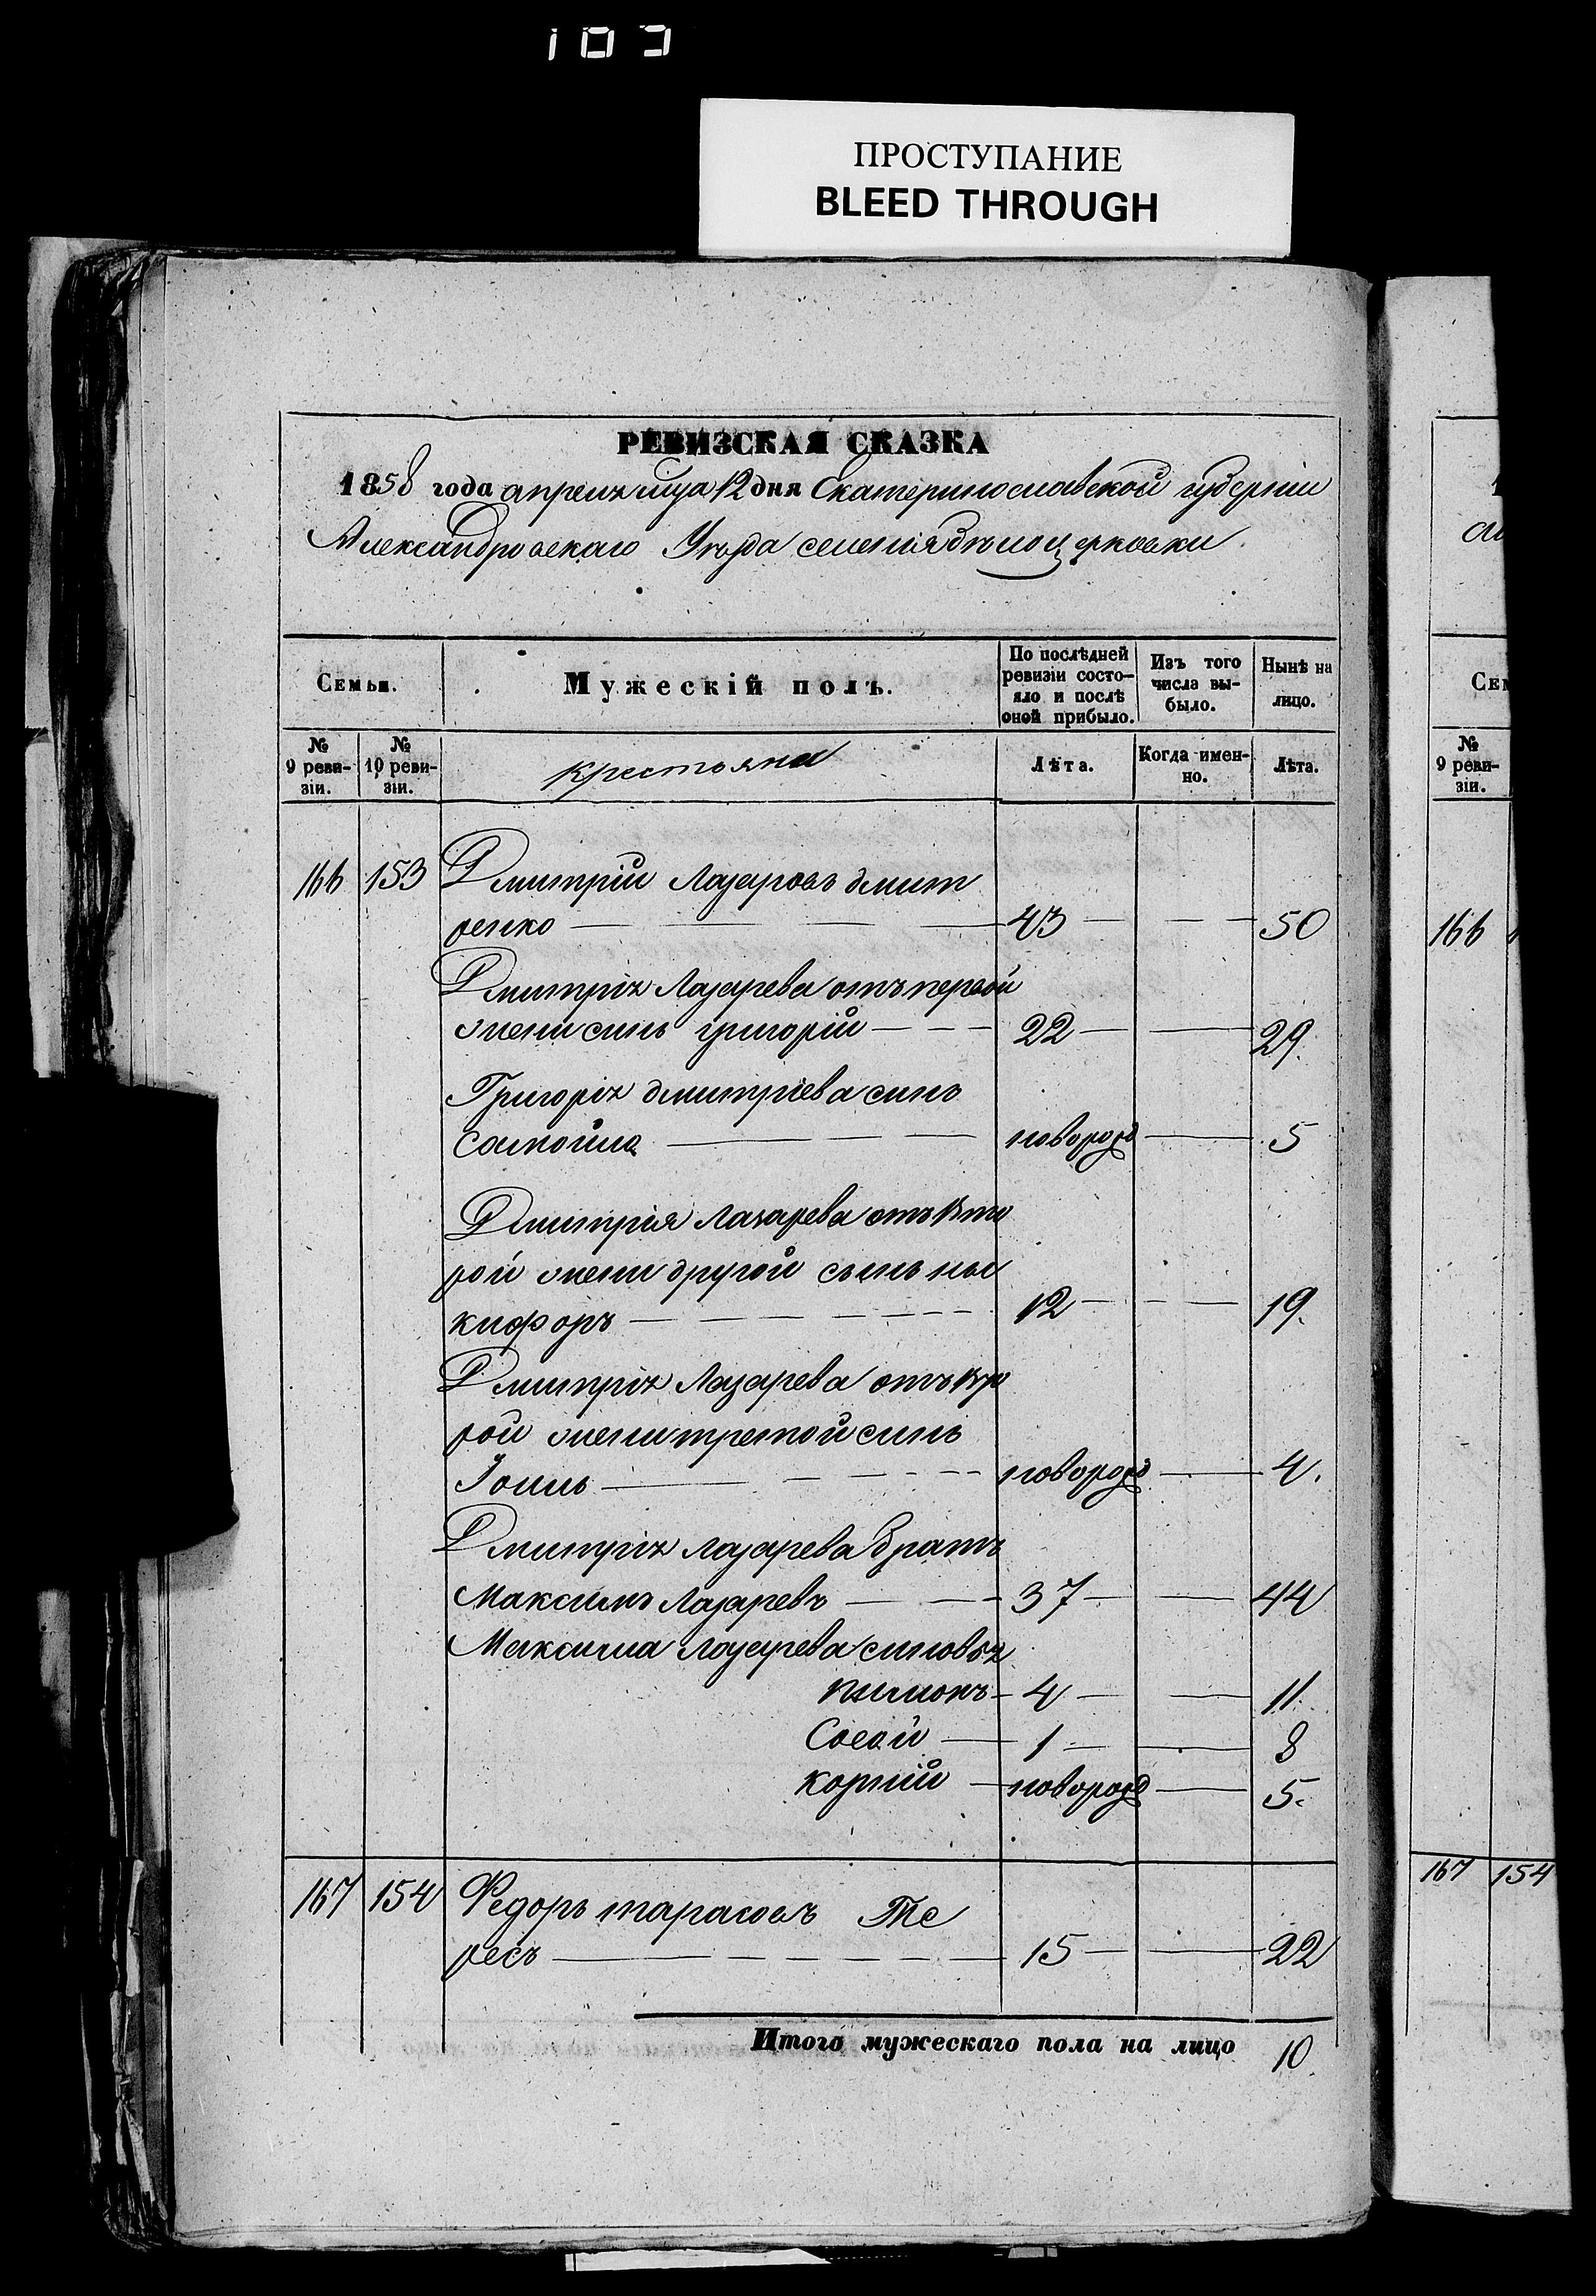 103
ПРОСТУПАНИЕ
BLEED THROUGH
РЕВИЗСКАЯ СКАЗКА
1858 года апреля мца 12 дня Екатеринославской губерніи
Александровскаго Уезда селения белоцерковки
Семьи.
Мужескій полъ.
По послѣдней ревизіи состояло и послѣ оной прибыло.
Изъ того числа выбыло.
Нынѣ на лицо.
№ 9 ревизіи.
№ 10 ревизіи.
крестьяне
Лѣта.
Когда именно.
Лѣта.
166 153 Дмитрій Лазаровъ дмит
ренко 43 50
Дмитрія Лазарева отъ первой
жени синъ григорій 22 29.
Григорія дмитріева синъ
самойла новорожд 5
Дмитрия Лазарева отъ вто
рой жени другой сынъ ны
кифоръ 12 19.
Дмитрія Лазарева отъ вто
рой жени третой синъ
Іоиль новорожд 4.
Дмитрія лазарева братъ
Максимъ Лазаревъ 37 44
Максима лазарева синовья
пилипъ 4 11.
Савай 1 8
корній новорожд 5.
167 154 Федоръ тарасовъ Те
ресъ 15 22
Итого мужескаго пола на лицо 10.
Сем
№ 9 ревизіи.
166
167 154